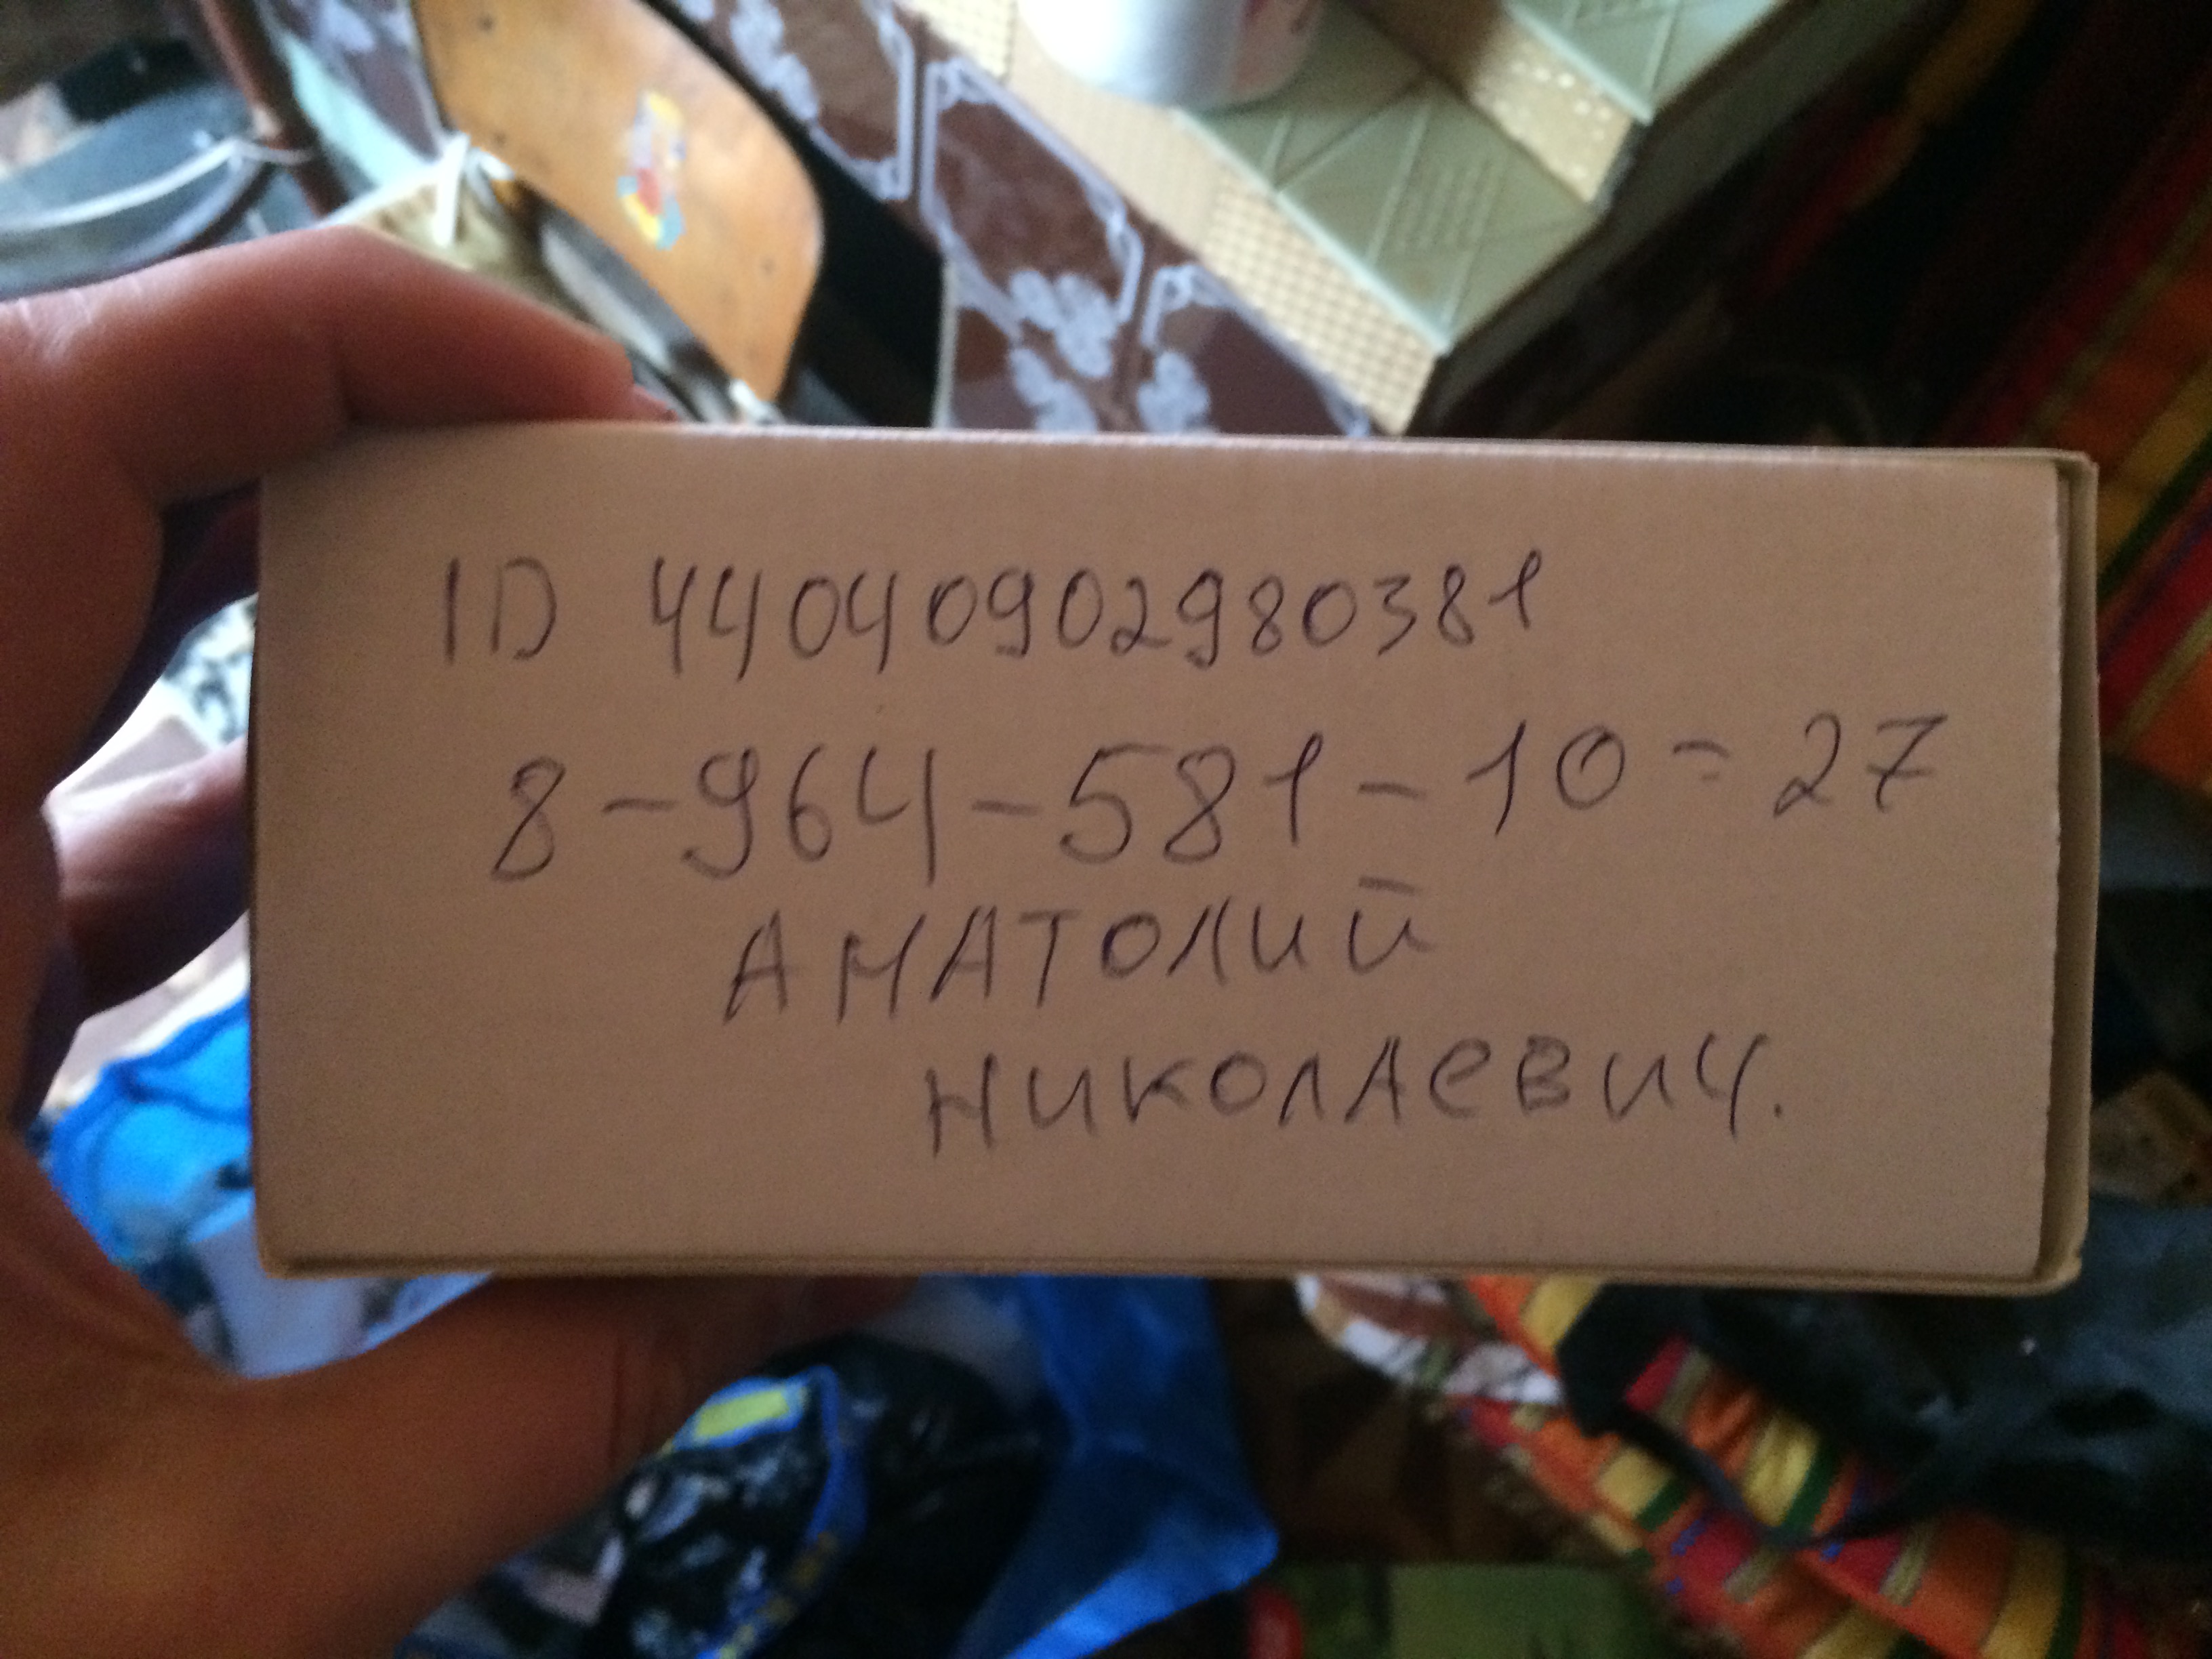 ID 44040902980381
8-964-581-10-27
Анатолий
Николаевич.